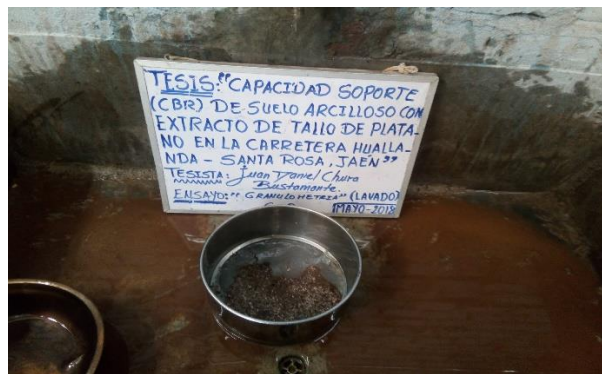 TESIS: "CAPACIDAD SOPORTE
(CBR) DE SUELO ARCILLOSO CON
EXTRACTO DE TALLO DE PLATA-
NO EN LA CARRETERA HUALLA-
NDA - SANTA ROSA, JAÉN"
TESISTA: Juan Daniel Chura
Bustamante.
ENSAYO: "GRANULOMETRIA" (LAVADO)
MAYO-2018